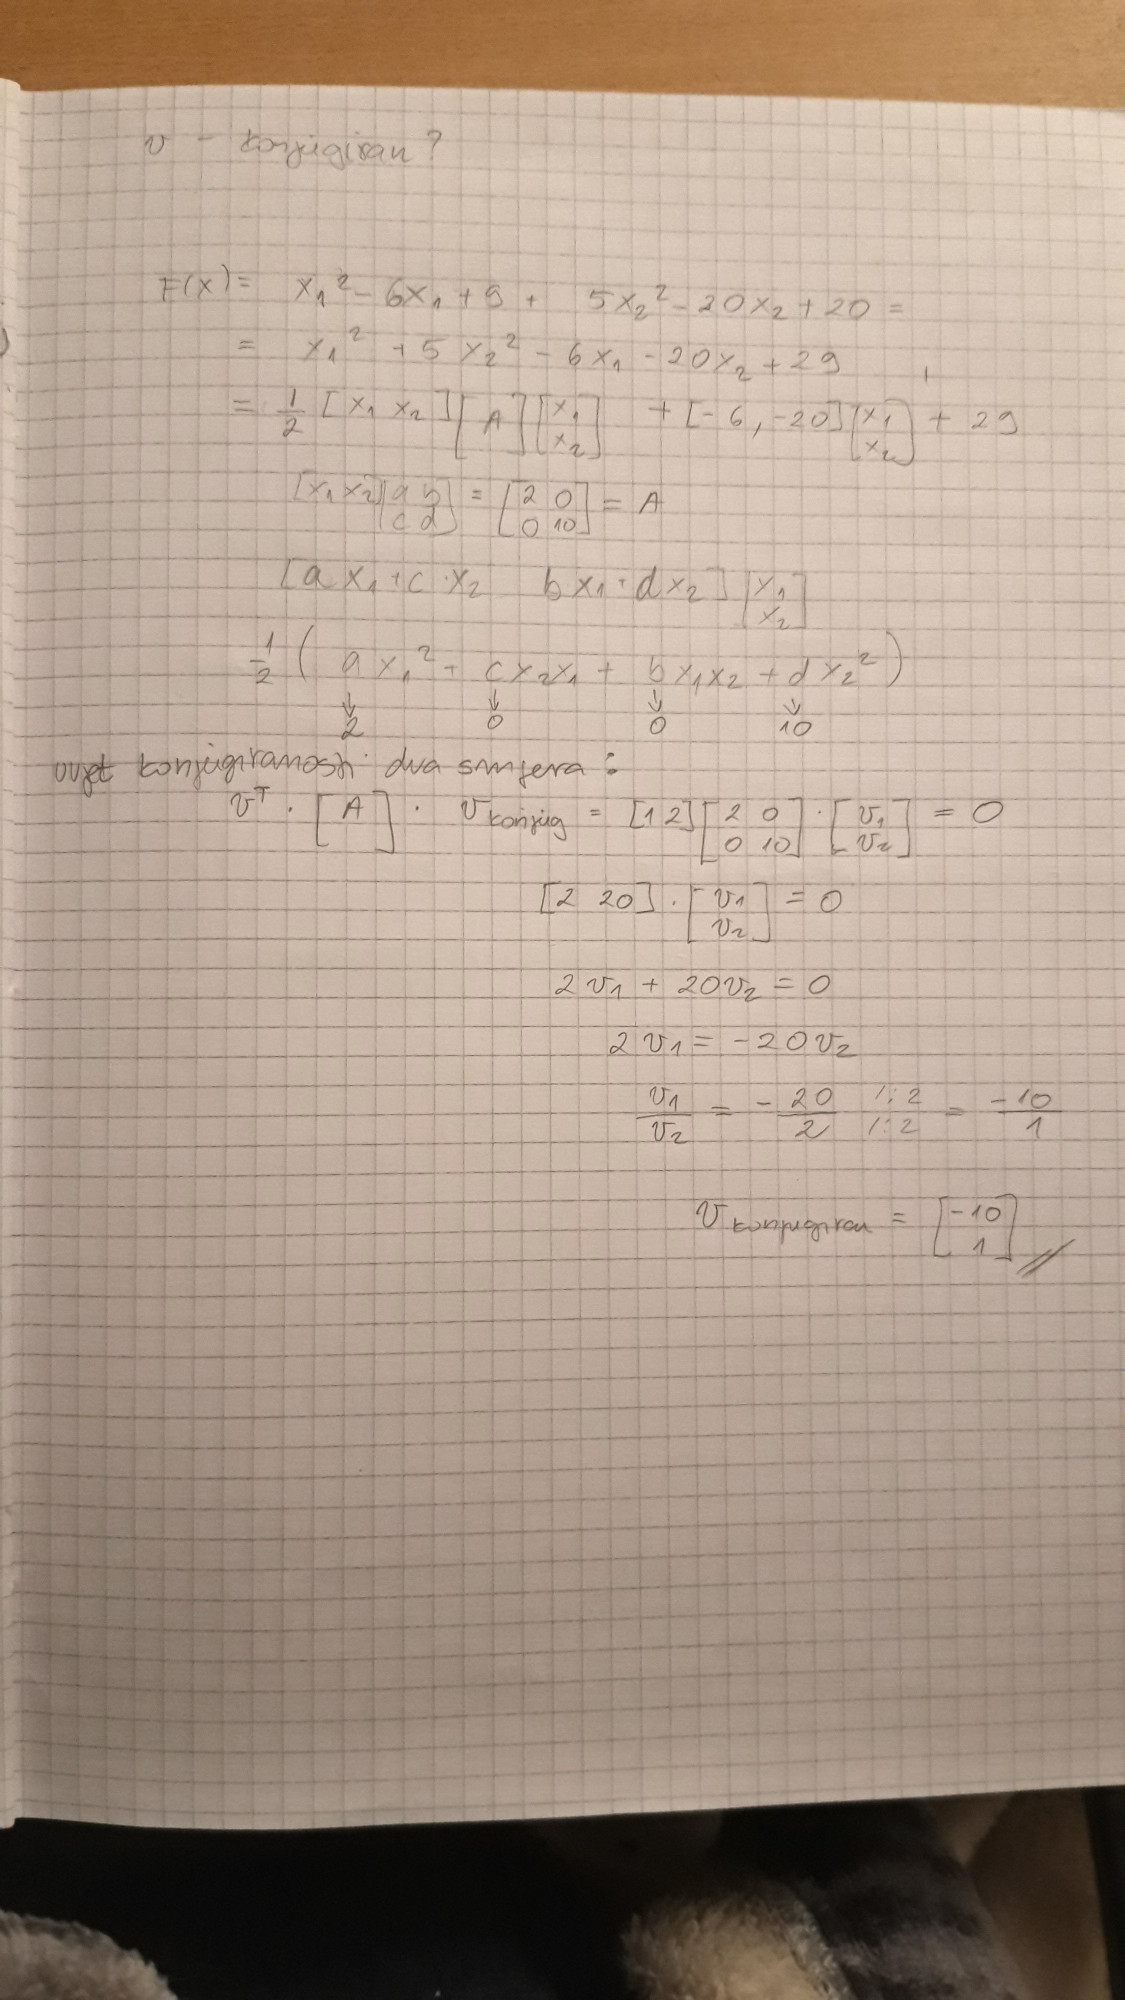 v - konjugiran?
F(x) = x₁² - 6x₁ + 9 + 5x₂² - 20x₂ + 20 =
= x₁² + 5x₂² - 6x₁ - 20x₂ + 29
= 1/2 [x₁ x₂] [A] [x₁ x₂] + [-6, -20] [x₁ x₂] + 29
[x₁ x₂] [a b c d] = [2 0 0 10] = A
[a x₁ + c · x₂ b x₁ + d x₂] [x₁ x₂]
1/2 ( a x₁² + c x₂x₁ + b x₁x₂ + d x₂² )
↓ ↓ ↓ ↓
2 0 0 10
uvjet konjugiranosti dva smjera:
vᵀ · [A] · v konjug = [1 2] [2 0 0 10] · [v₁ v₂] = 0
[2 20] · [v₁ v₂] = 0
2v₁ + 20v₂ = 0
2v₁ = -20v₂
v₁/v₂ = - 20/2 /:2 /:2 = -10/1
v konjugiran = [-10 1] //